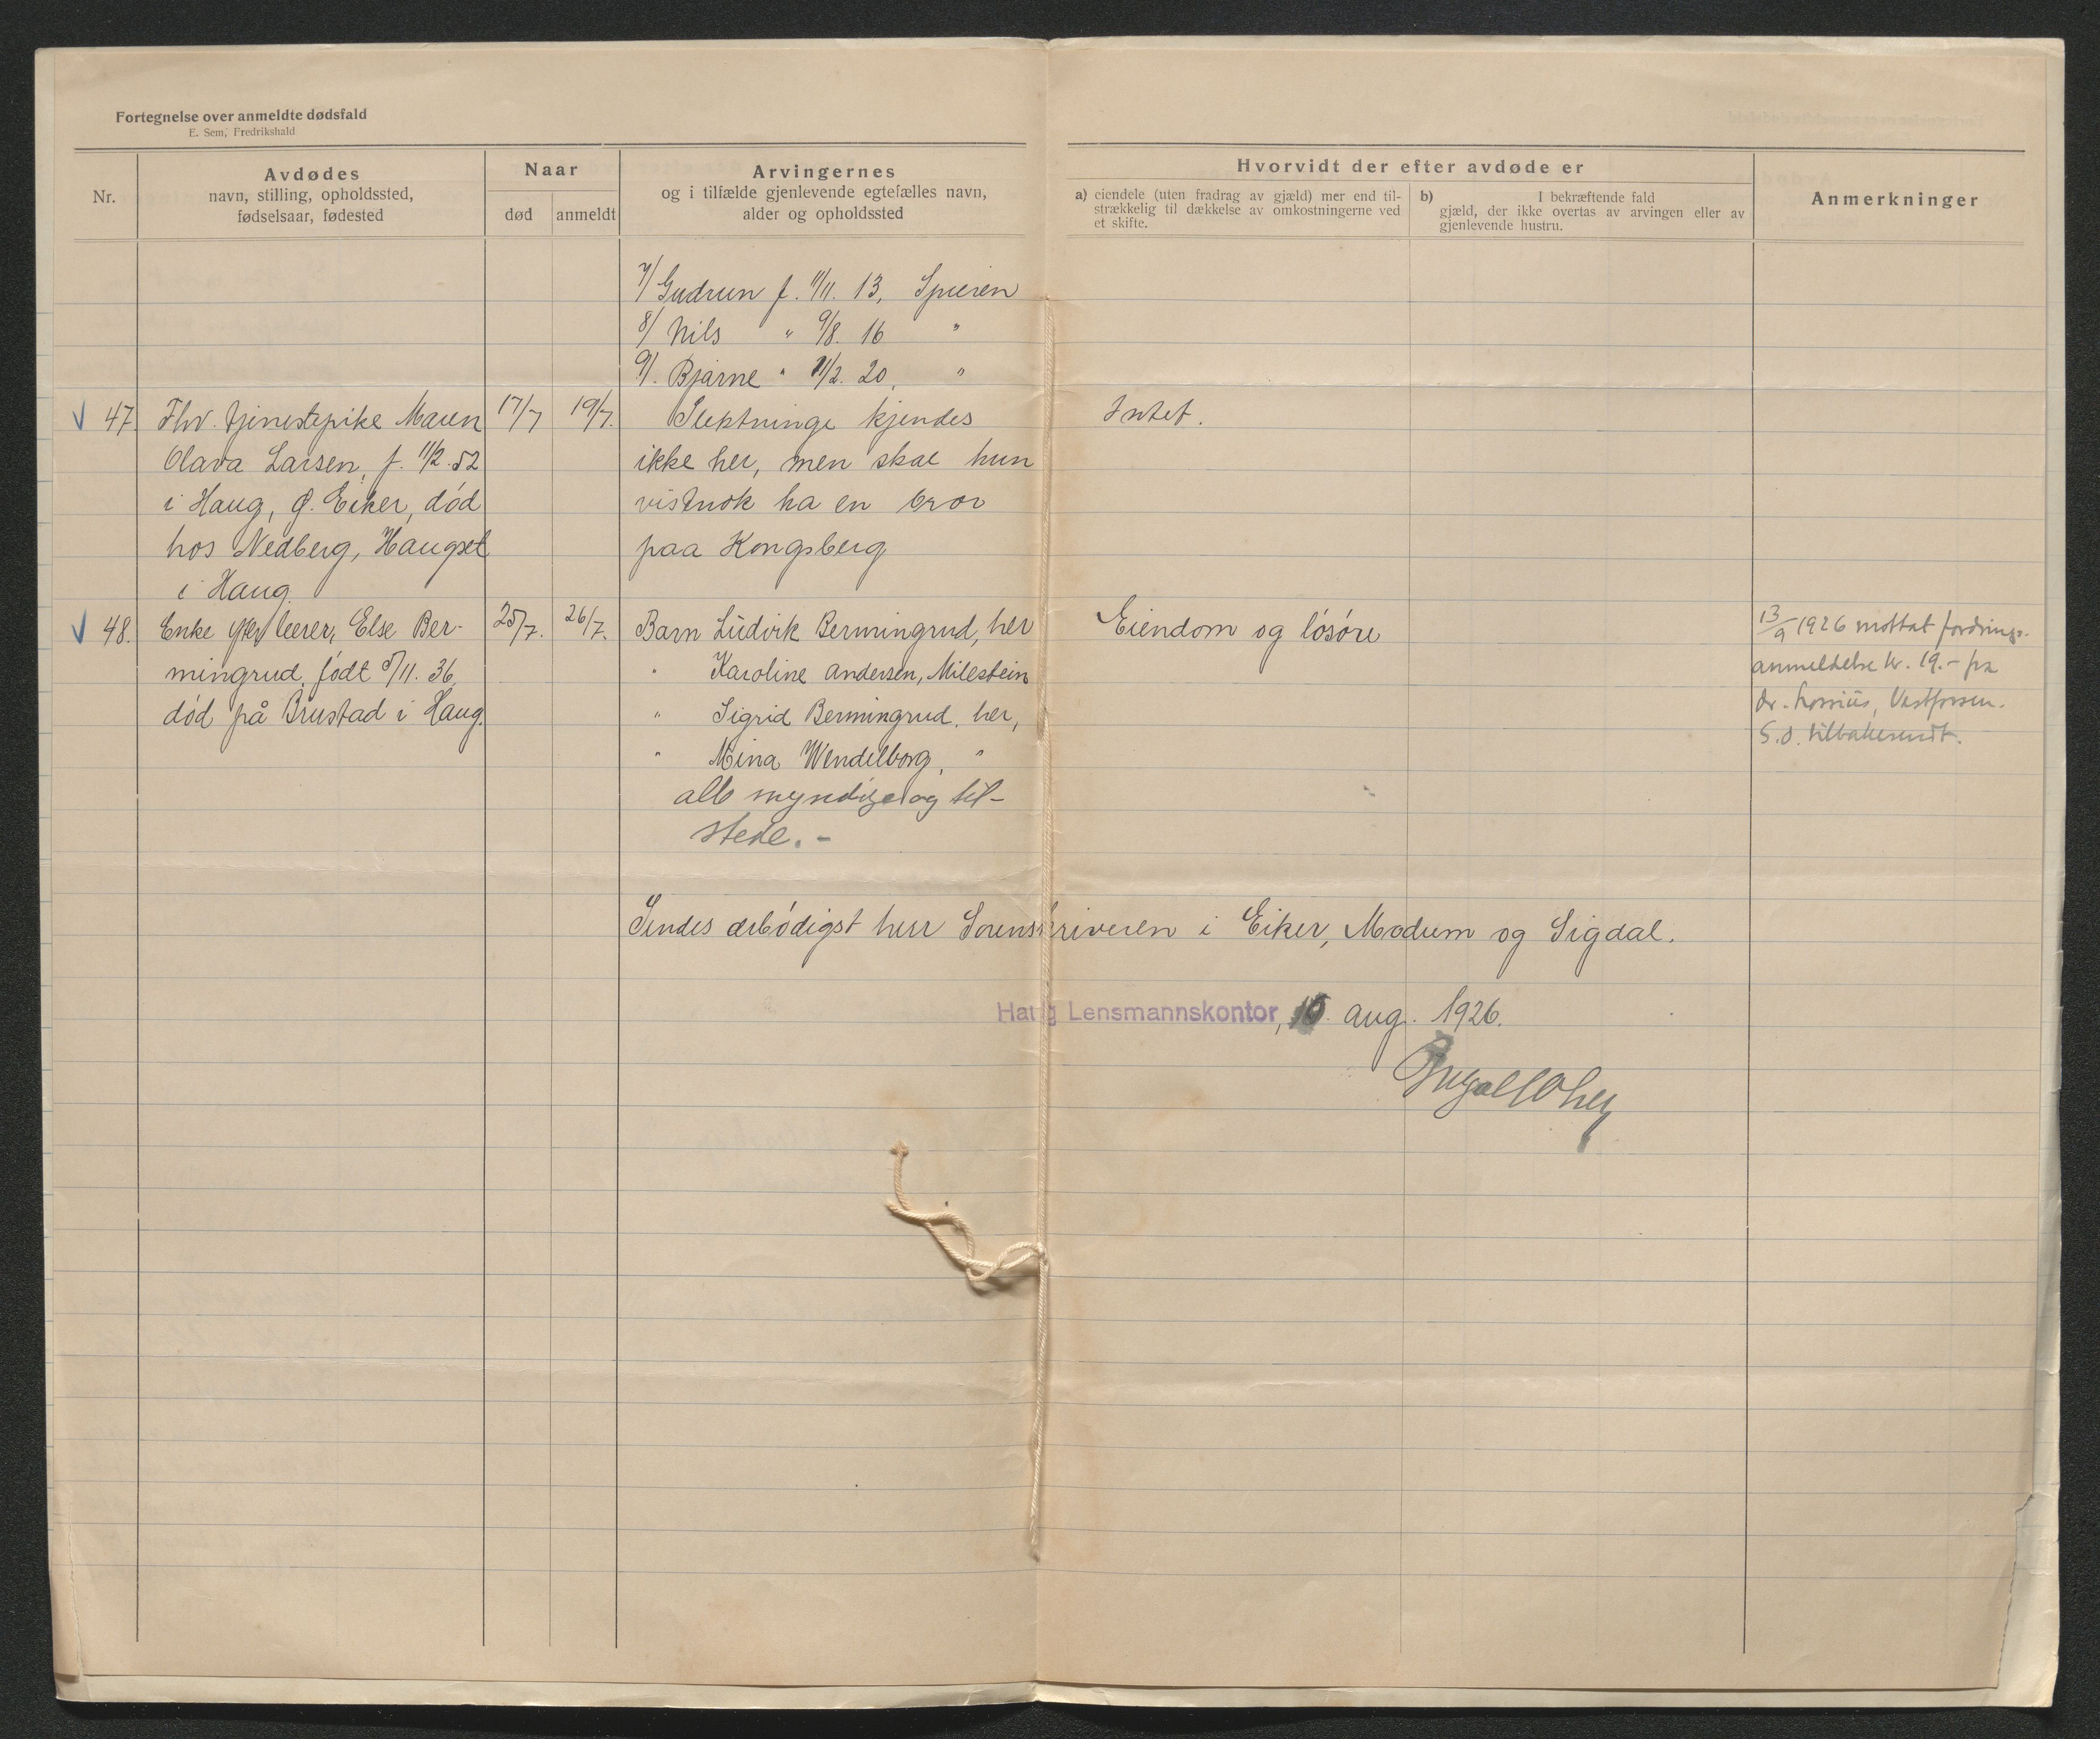 Fortegnelse over anmeldte dødsfald
E. Sem, Fredrikshald
Nr.
Avdødes
navn, stilling, opholdssted,
fødselsaar, fødested
Naar
død
anmeldt
Arvingernes
og i tilfælde gjenlevende egtefælles navn,
alder og opholdssted
Hvorvidt der efter avdøde er
a) eiendele (uten fradrag av gjæld) mer end til-
strækkelig til dækkelse av omkostningerne ved
et skifte.
b) I bekræftende fald
gjæld, der ikke overtas av arvingen eller av
gjenlevende hustru.
Anmerkninger
7/ Gudrun f. 11/11. 13, Spieren
8/ Nils " 9/8. 16 "
9/. Bjarne " 11/2. 20, "
47. Fhv. tjenestepike Maren 17/7 19/7. Slektninge kjendes Intet.
Olava Larsen, f. 11/2. 52 ikke her, men skal hun
i Haug, Ø. Eiker, død vistnok ha en bror
hos Nedberg, Haugset paa Kongsberg
i Haug.
48. Enke efter Else Ber- 25/7. 26/7. Barn Ludvik Bermingrud, her Eiendom og løsøre 13/9 1926 mottat fordrings-
mingrud, født 5/11. 36, " Karoline Andersen, Milestein anmeldelse kr. 19.- fra
død på Brustad i Haug. " Sigrid Bermingrud, her, dr. Vestfossen.
" Mina Wendelborg, " S.d. tilbakesendt.
alle myndige og til-
stede. -
Sendes ærbødigst herr Sorenskriveren i Eiker, Modum og Sigdal.
Haug Lensmannskontor, 10. aug. 1926.